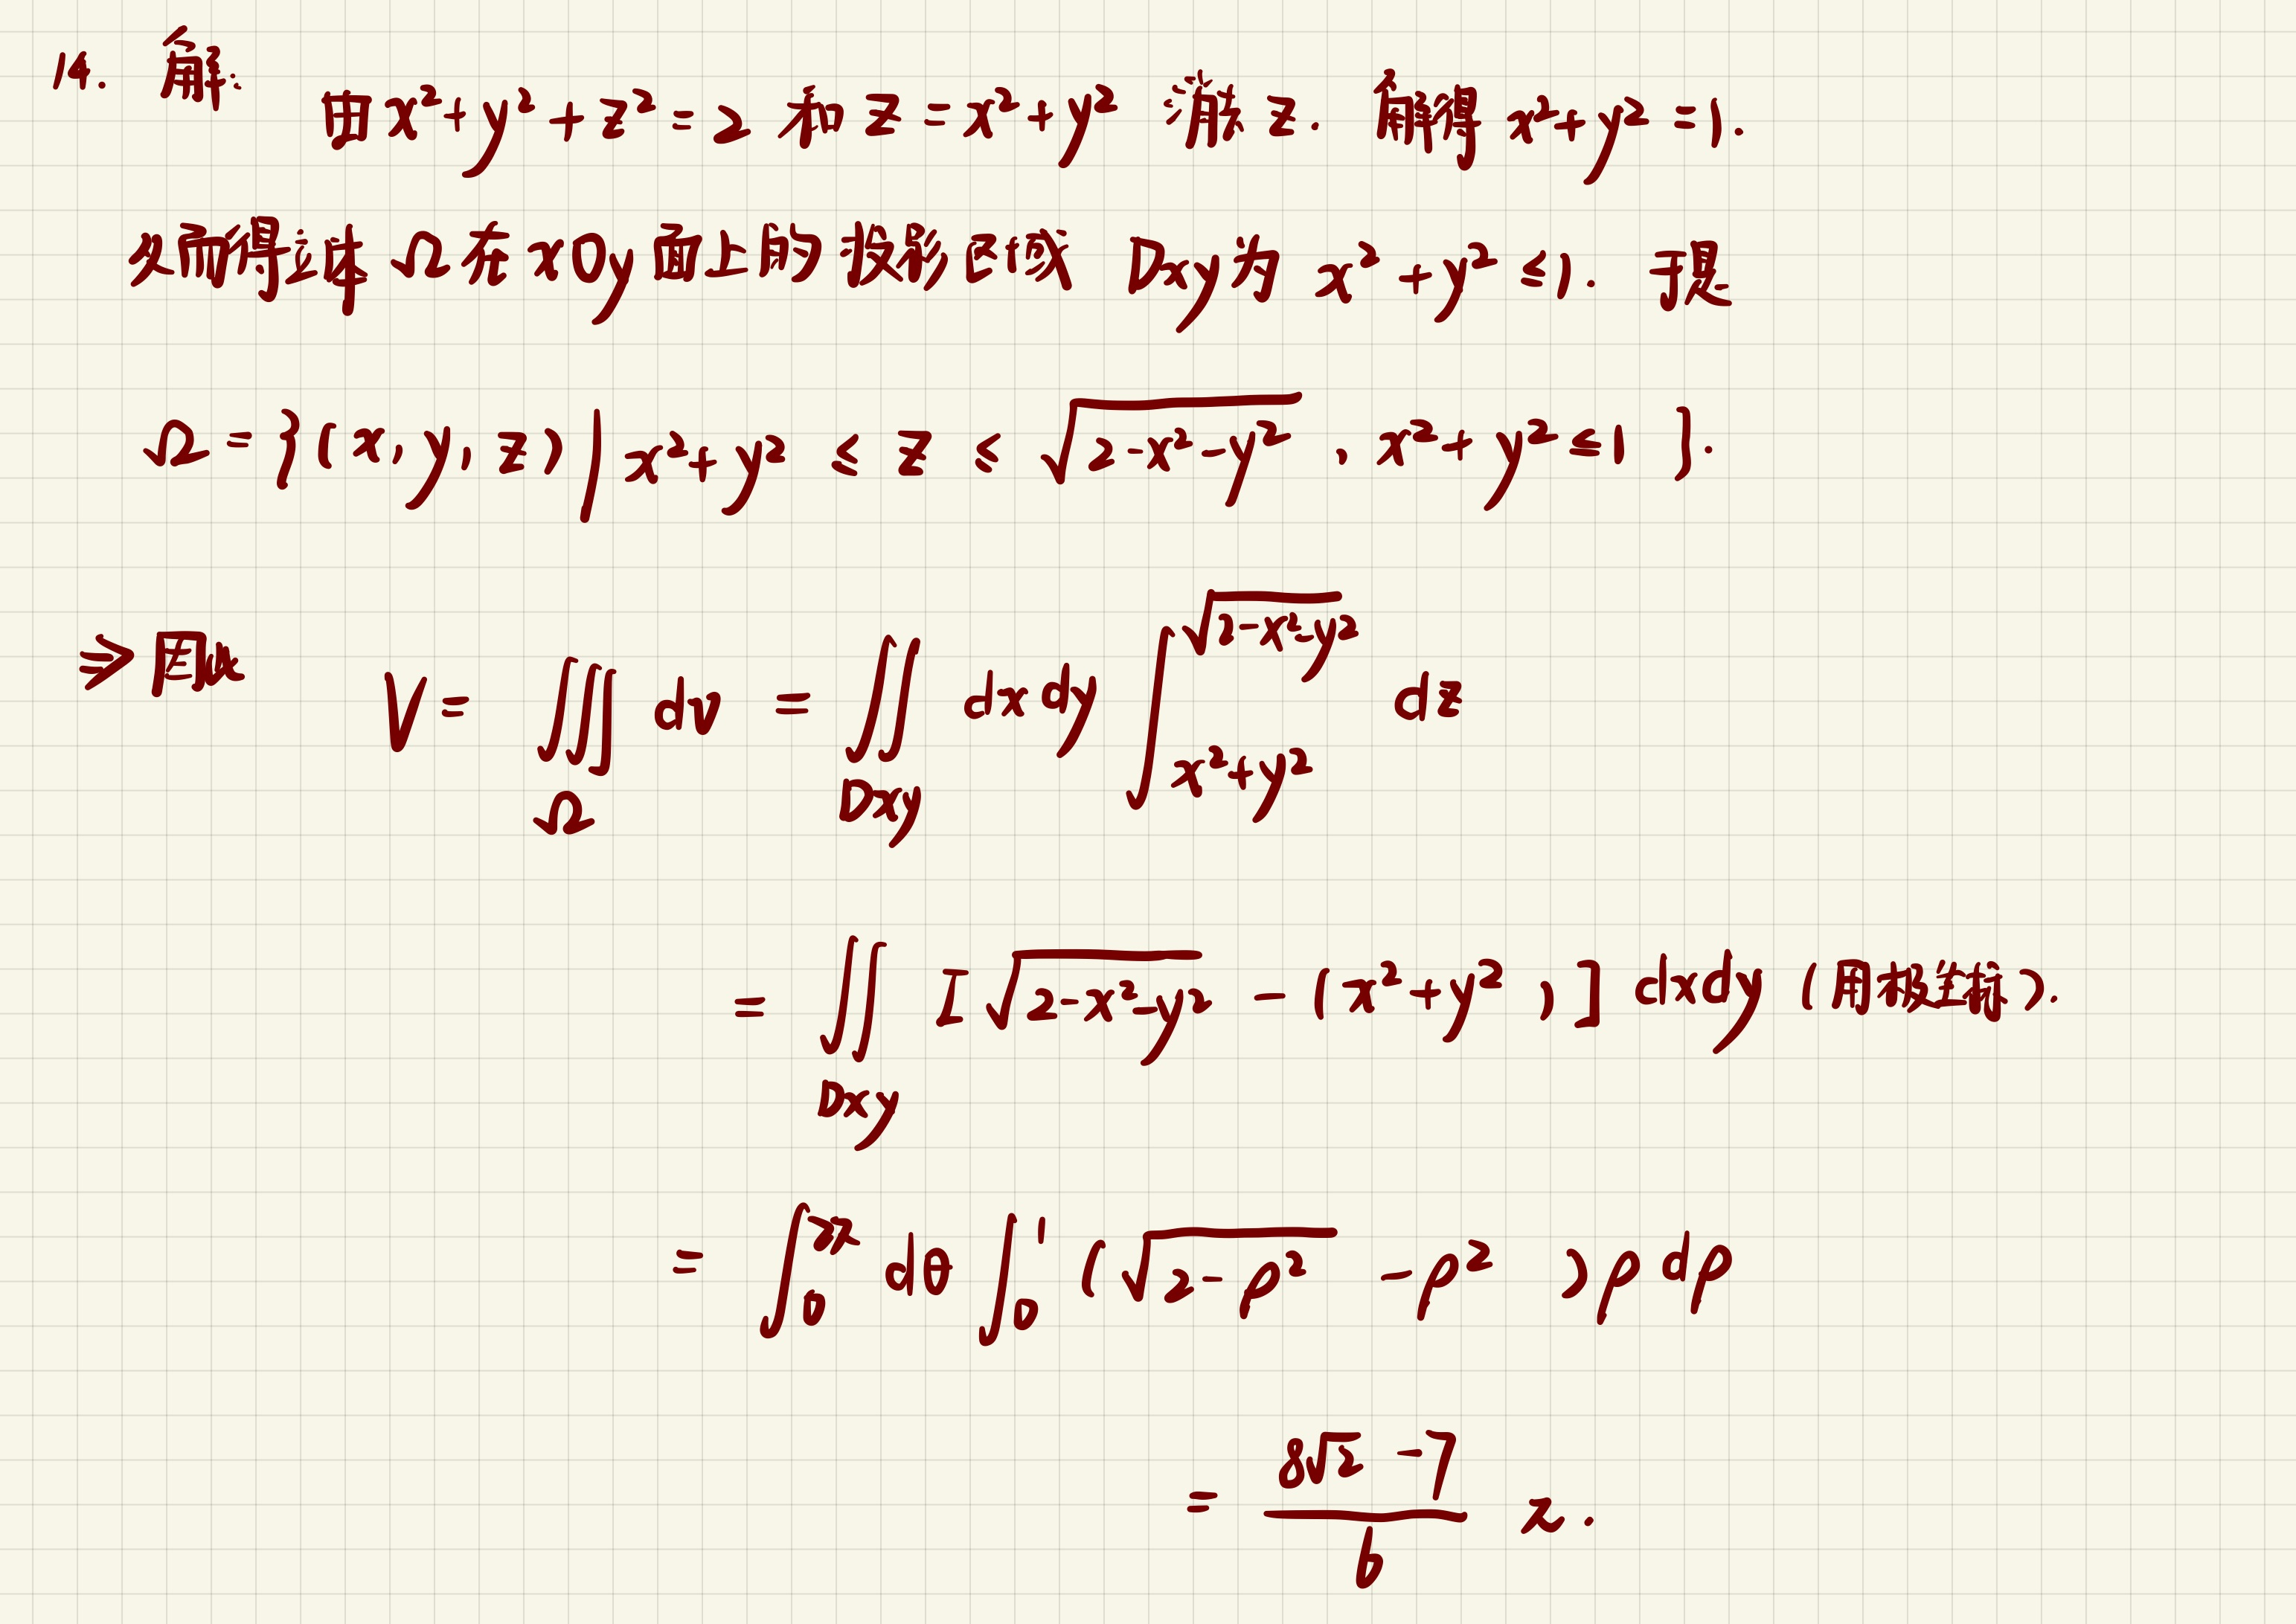 14. 解:
由x²+y²+z²=2 和 z=x²+y² 消去z. 解得 x²+y²=1.
从而得立体Ω在xOy面上的投影区域 Dxy为 x²+y²≤1. 于是
Ω={(x,y,z)|x²+y² ≤ z ≤ √(2-x²-y²), x²+y²≤1}.
⇒因此
V= ∭_Ω dv = ∬_Dxy dxdy ∫_{x²+y²}^{√(2-x²-y²)} dz
= ∬_Dxy [√(2-x²-y²) -(x²+y²)] dxdy (用极坐标).
= ∫_0^{2π} dθ ∫_0^1 (√(2-ρ²) -ρ²)ρ dρ
= (8√2 -7)/6 π.